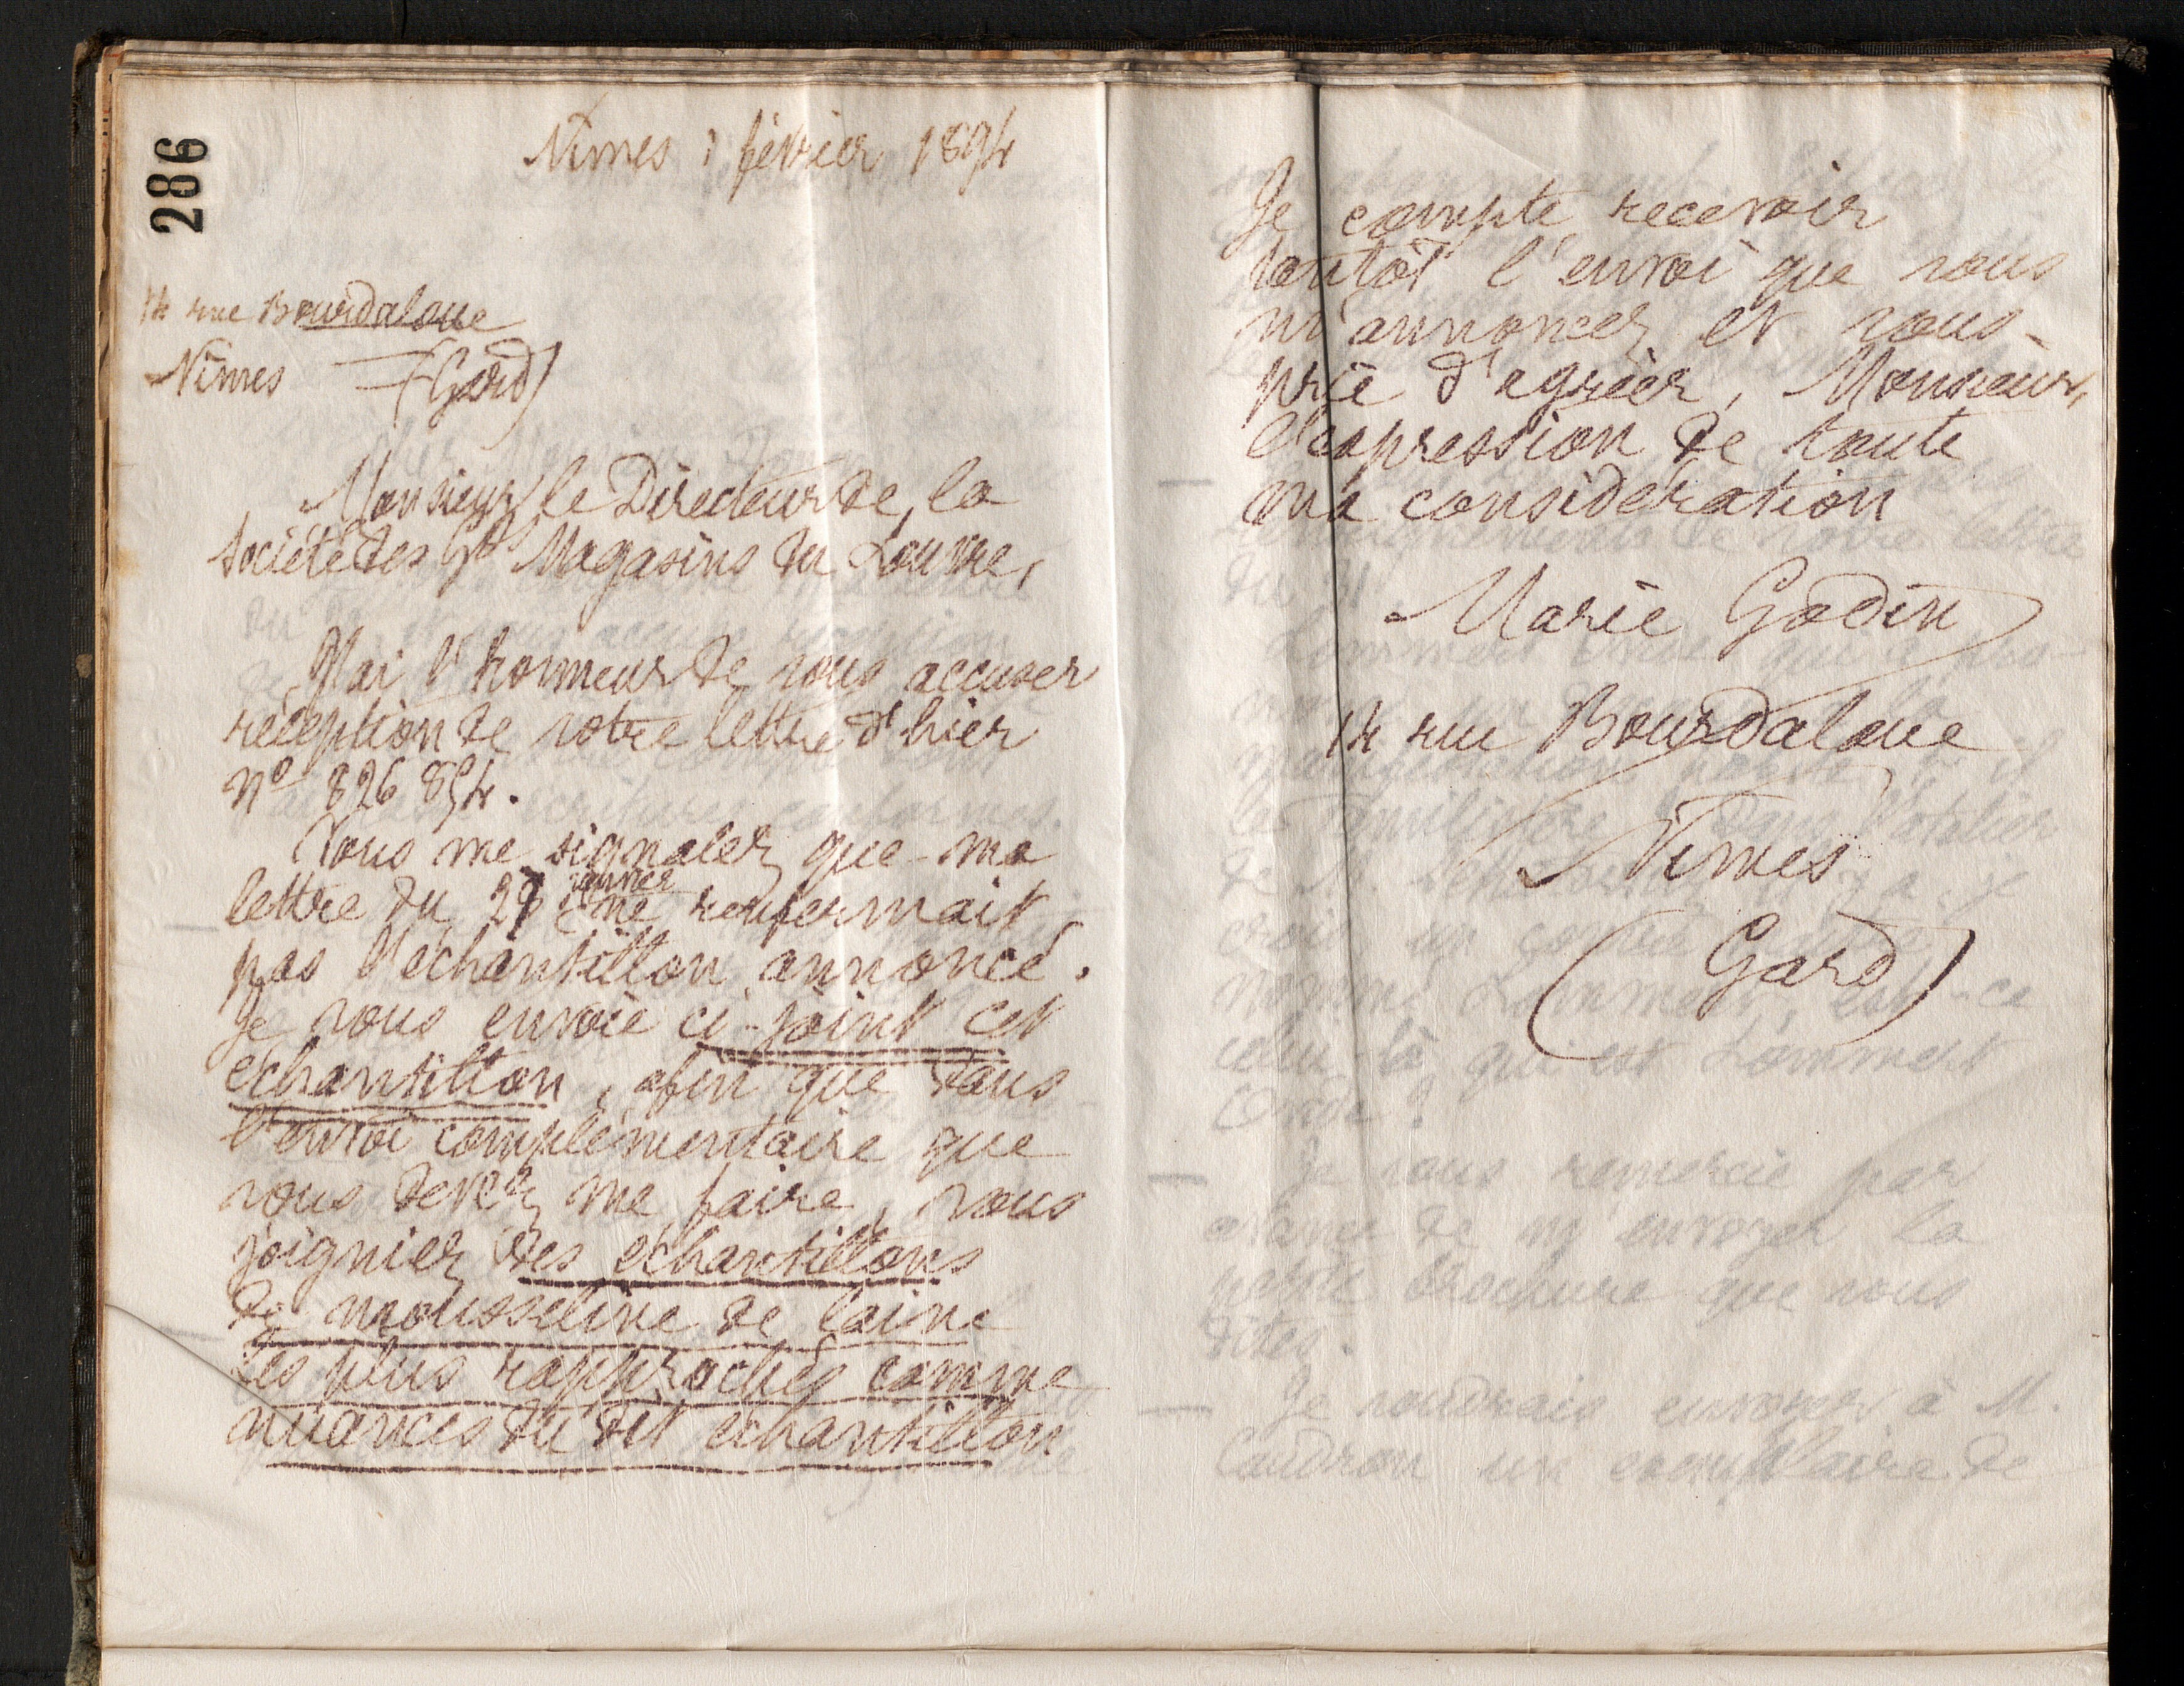 286
Nîmes 1 février 1894
14 rue Bourdaloue
Nîmes (Gard)
Monsieur le Directeur de la
Société des Gds Magasins du Louvre,
J'ai l'honneur de vous accuser
réception de votre lettre d'hier
No 826 894.
Vous me signalez que ma
lettre du 29 janvier ne renfermait
pas l'échantillon annoncé.
Je vous envoie ci-joint cet
échantillon, afin que dans
l'envoi complémentaire que
vous devez me faire, vous
joigniez des échantillons
de mousseline de laine
les plus rapprochés comme
nuances du dit échantillon
Je compte recevoir
tantôt l'envoi que vous
m'annoncez et vous
prie d'agréer, Monsieur,
l'expression de toute
ma considération
Marie Godin
14 rue Bourdaloue
Nîmes
(Gard)